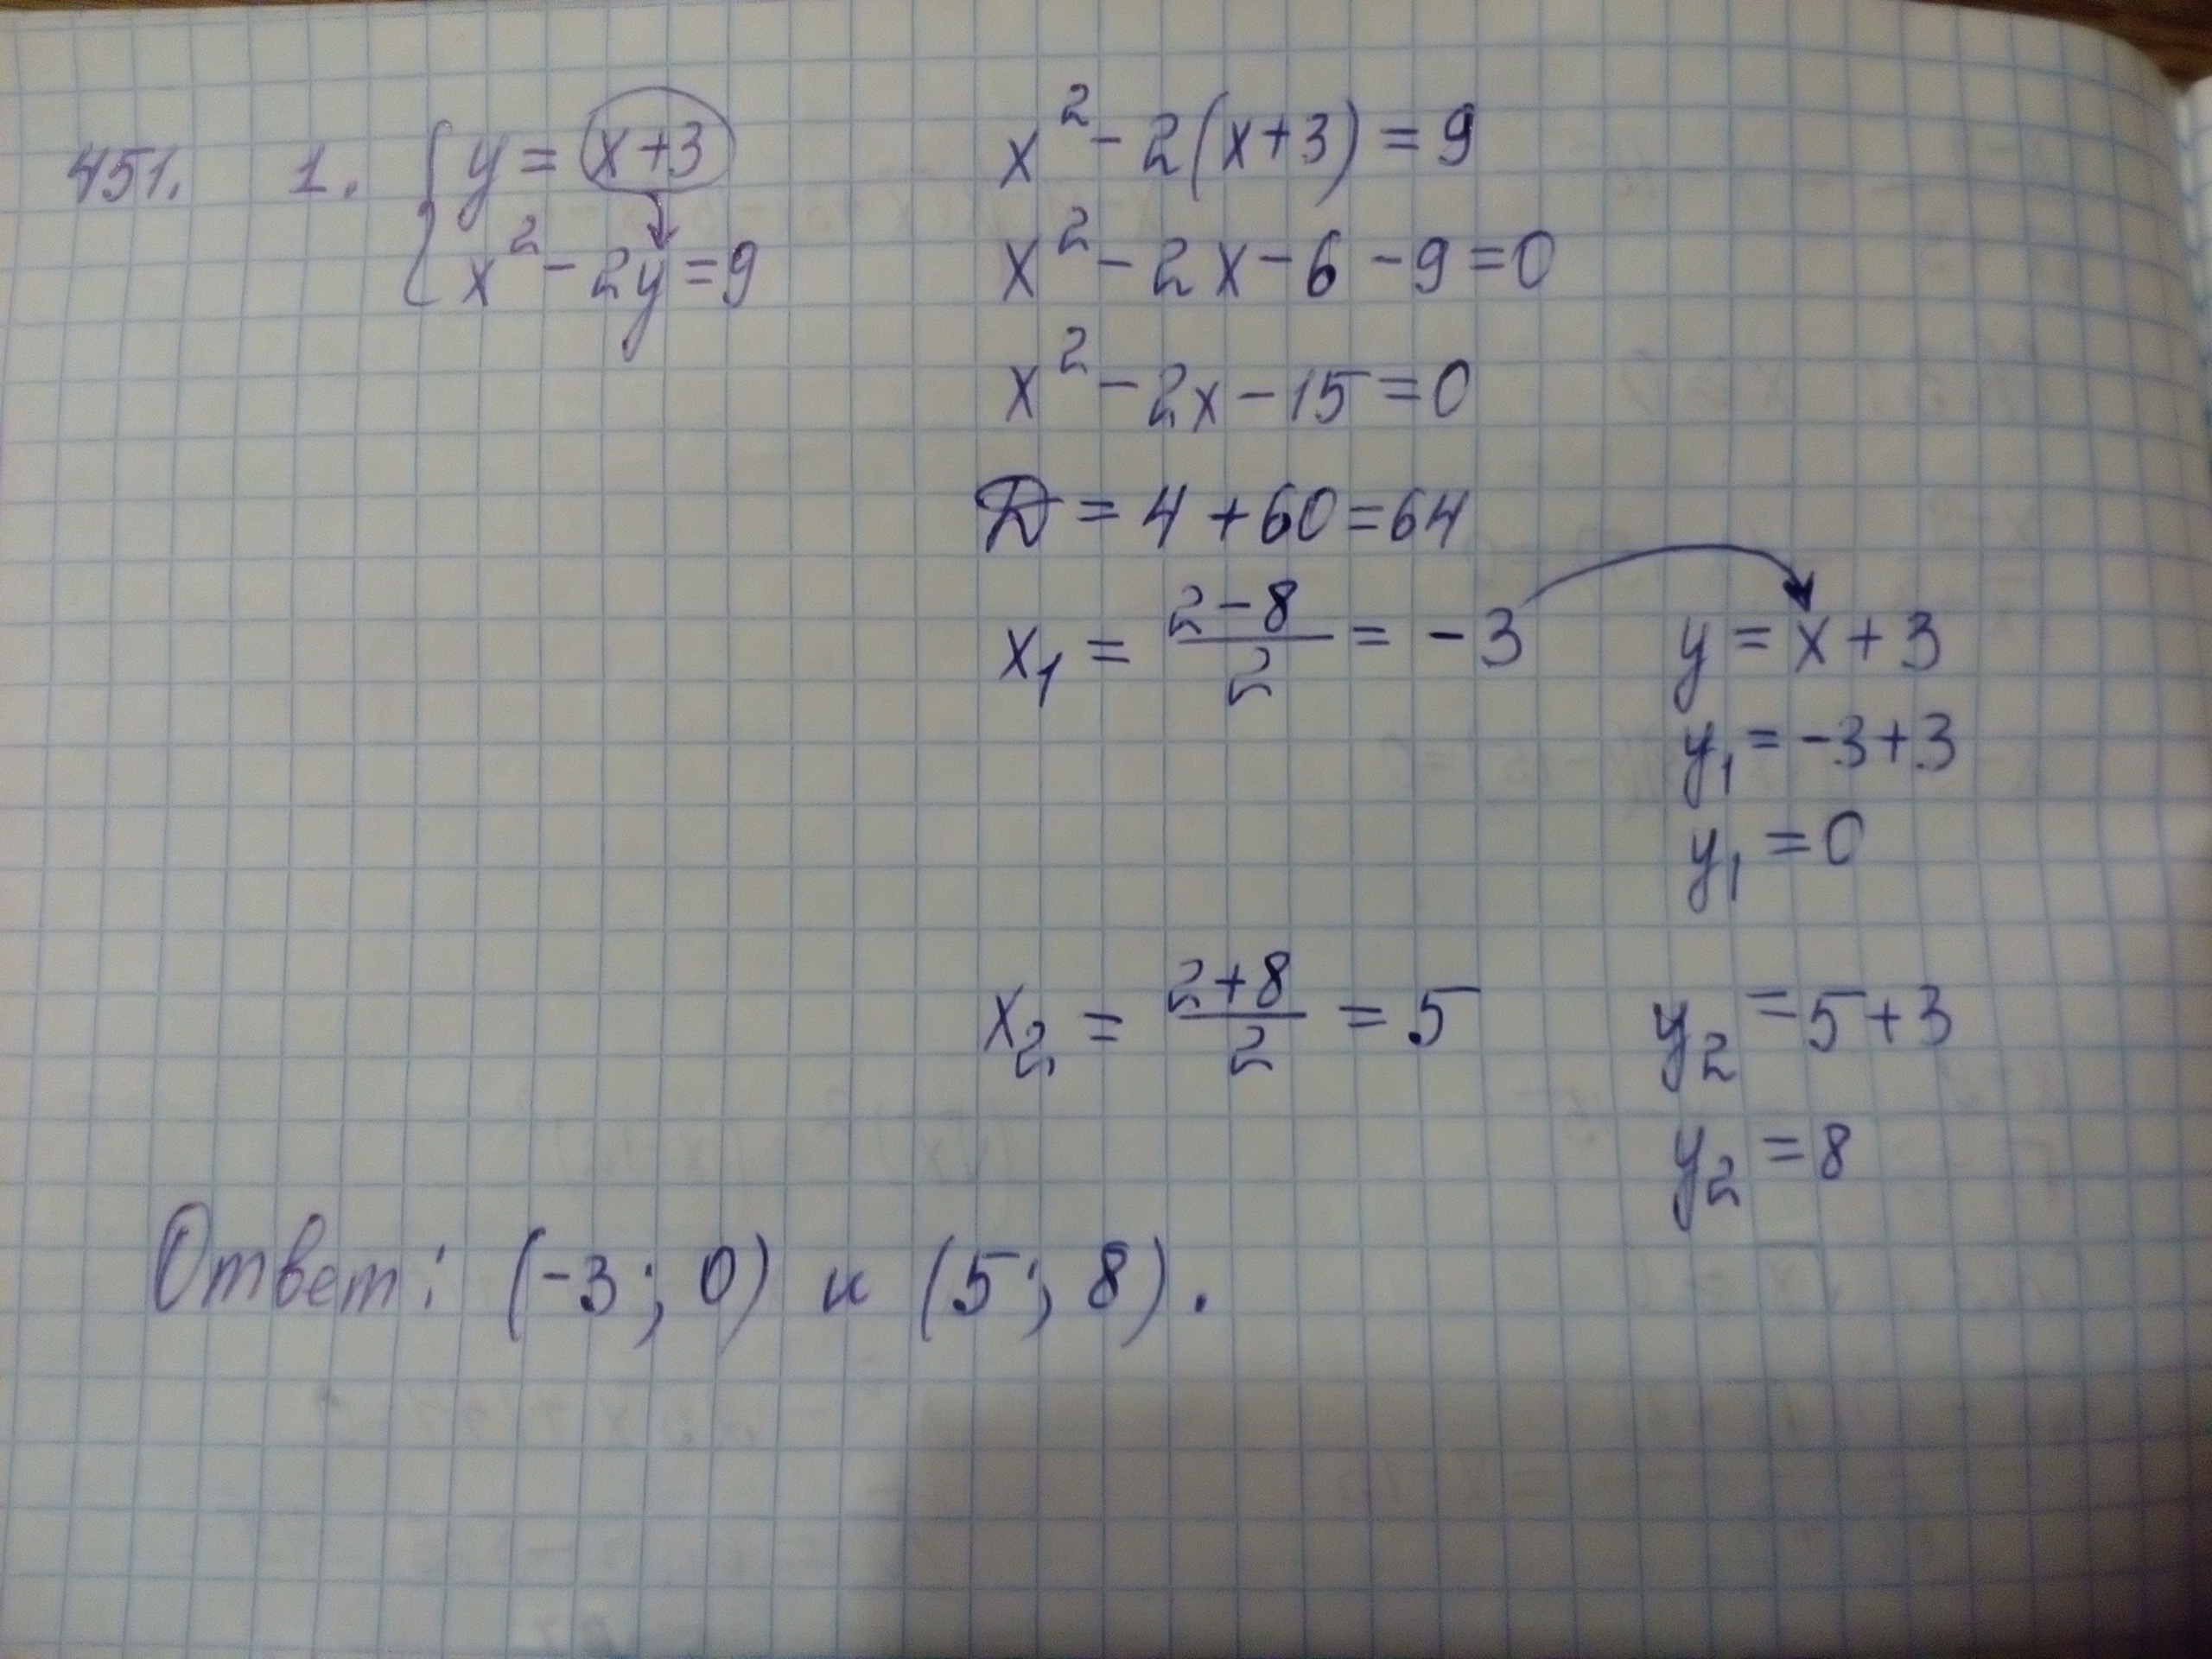 451. 1. { y = x+3
x² - 2y = 9
x² - 2(x+3) = 9
x² - 2x - 6 - 9 = 0
x² - 2x - 15 = 0
D = 4 + 60 = 64
x₁ = (2-8)/2 = -3
y = x + 3
y₁ = -3+3
y₁ = 0
x₂ = (2+8)/2 = 5
y₂ = 5+3
y₂ = 8
Ответ: (-3; 0) и (5; 8).